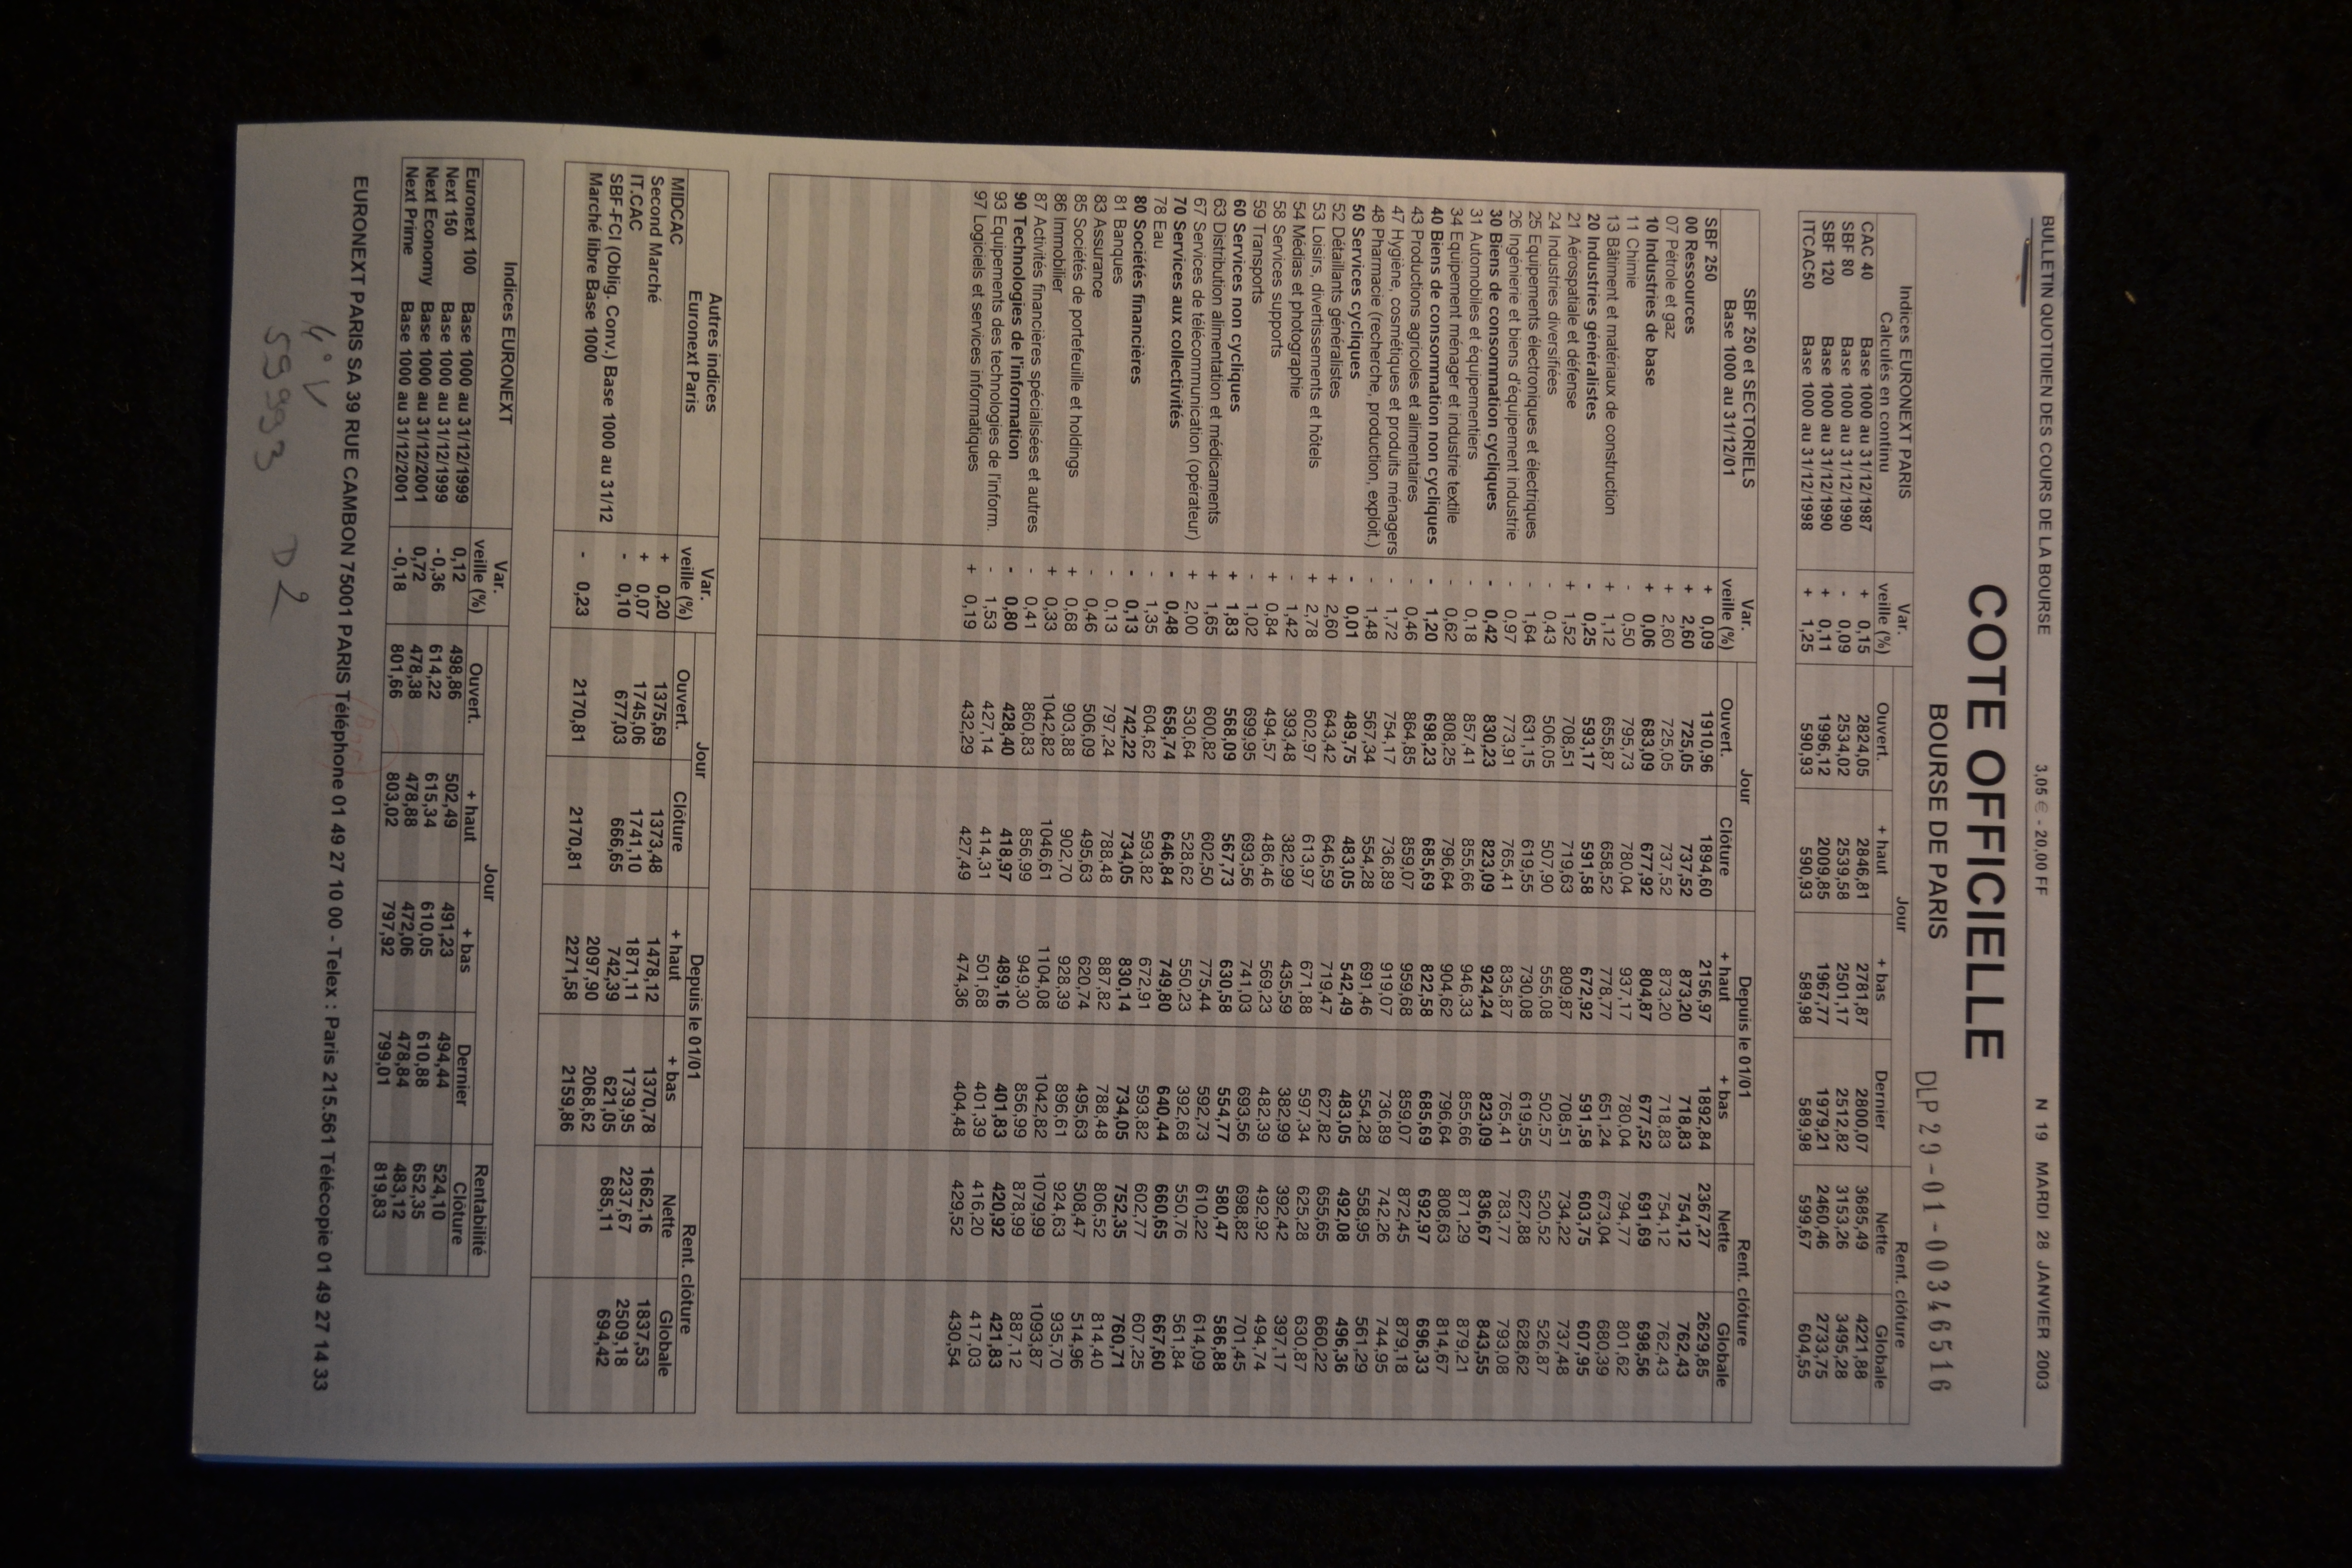 BULLETIN QUOTIDIEN DES COURS DE LA BOURSE 3,05 € - 20,00 FF N 19 MARDI 28 JANVIER 2003
COTE OFFICIELLE
BOURSE DE PARIS DLP 29-01-00346516
Indices EURONEXT PARIS Var. Jour Rent. clôture
Calculés en continu veille (%) Ouvert. + haut + bas Dernier Nette Globale
CAC 40 Base 1000 au 31/12/1987 + 0,15 2824,05 2846,81 2781,87 2800,07 3685,49 4221,88
SBF 80 Base 1000 au 31/12/1990 - 0,09 2534,02 2539,58 2501,17 2512,82 3153,26 3495,28
SBF 120 Base 1000 au 31/12/1990 + 0,11 1996,12 2009,85 1967,77 1979,21 2460,46 2733,75
ITCAC50 Base 1000 au 31/12/1998 + 1,25 590,93 590,93 589,98 589,98 599,67 604,55
SBF 250 et SECTORIELS Var. Jour Depuis le 01/01 Rent. clôture
Base 1000 au 31/12/01 veille (%) Ouvert. Clôture + haut + bas Nette Globale
SBF 250 + 0,09 1910,96 1894,60 2156,97 1892,84 2367,27 2629,85
00 Ressources + 2,60 725,05 737,52 873,20 718,83 754,12 762,43
07 Pétrole et gaz + 2,60 725,05 737,52 873,20 718,83 754,12 762,43
10 Industries de base + 0,06 683,09 677,92 804,87 677,52 691,69 698,56
11 Chimie - 0,50 795,73 780,04 937,17 780,04 794,77 801,62
13 Bâtiment et matériaux de construction + 1,12 655,87 658,52 778,77 651,24 673,04 680,39
20 Industries généralistes - 0,25 593,17 591,58 672,92 591,58 603,75 607,95
21 Aérospatiale et défense + 1,52 708,51 719,63 809,87 708,51 734,22 737,48
24 Industries diversifiées - 0,43 506,05 507,90 555,08 502,57 520,52 526,87
25 Equipements électroniques et électriques - 1,64 631,15 619,55 730,08 619,55 627,88 628,62
26 Ingénierie et biens d'équipement industrie - 0,97 773,91 765,41 835,87 765,41 783,77 793,08
30 Biens de consommation cycliques - 0,42 830,23 823,09 924,24 823,09 836,67 843,55
31 Automobiles et équipementiers - 0,18 857,41 855,66 946,33 855,66 871,29 879,21
34 Equipement ménager et industrie textile - 0,62 808,25 796,64 904,62 796,64 808,63 814,67
40 Biens de consommation non cycliques - 1,20 698,23 685,69 822,58 685,69 692,97 696,33
43 Productions agricoles et alimentaires - 0,46 864,85 859,07 959,68 859,07 872,45 879,18
47 Hygiène, cosmétiques et produits ménagers - 1,72 754,17 736,89 919,07 736,89 742,26 744,95
48 Pharmacie (recherche, production, exploit.) - 1,48 567,34 554,28 691,46 554,28 558,95 561,29
50 Services cycliques - 0,01 489,75 483,05 542,49 483,05 492,08 496,36
52 Détaillants généralistes + 2,60 643,42 646,59 719,47 627,82 655,65 660,22
53 Loisirs, divertissements et hôtels + 2,78 602,97 613,97 671,88 597,34 625,28 630,87
54 Médias et photographie - 1,42 393,48 382,99 435,59 382,99 392,42 397,17
58 Services supports + 0,84 494,57 486,46 569,23 482,39 492,92 494,74
59 Transports - 1,02 699,95 693,56 741,03 693,56 698,82 701,45
60 Services non cycliques + 1,83 568,09 567,73 630,58 554,77 580,47 586,88
63 Distribution alimentation et médicaments + 1,65 600,82 602,50 775,44 592,73 610,22 614,09
67 Services de télécommunication (opérateur) + 2,00 530,64 528,62 550,23 392,68 550,76 561,84
70 Services aux collectivités - 0,48 658,74 646,84 749,80 640,44 660,65 667,60
78 Eau - 1,35 604,62 593,82 672,91 593,82 602,77 607,25
80 Sociétés financières - 0,13 742,22 734,05 830,14 734,05 752,35 760,71
81 Banques - 0,13 797,24 788,48 887,82 788,48 806,52 814,40
83 Assurance - 0,46 506,09 495,63 620,74 495,63 508,47 514,96
85 Sociétés de portefeuille et holdings + 0,68 903,88 902,70 928,39 896,61 924,63 935,70
86 Immobilier + 0,33 1042,82 1046,61 1104,08 1042,82 1079,99 1093,87
87 Activités financières spécialisées et autres - 0,41 860,83 856,99 949,30 856,99 878,99 887,12
90 Technologies de l'information - 0,80 428,40 418,97 489,16 401,83 420,92 421,83
93 Equipements des technologies de l'inform. - 1,53 427,14 414,31 501,68 401,39 416,20 417,03
97 Logiciels et services informatiques + 0,19 432,29 427,49 474,36 404,48 429,52 430,54
Autres indices Var. Jour Depuis le 01/01 Rent. clôture
Euronext Paris veille (%) Ouvert. Clôture + haut + bas Nette Globale
MIDCAC + 0,20 1375,69 1373,48 1478,12 1370,78 1662,16 1837,53
Second Marché + 0,07 1745,06 1741,10 1871,11 1739,95 2237,67 2509,18
IT.CAC - 0,10 677,03 666,65 742,39 621,05 685,11 694,42
SBF-FCI (Oblig. Conv.) Base 1000 au 31/12 2097,90 2068,62
Marché libre Base 1000 - 0,23 2170,81 2170,81 2271,58 2159,86
Indices EURONEXT Var. Jour Rentabilité
veille (%) Ouvert. + haut + bas Dernier Clôture
Euronext 100 Base 1000 au 31/12/1999 0,12 498,86 502,49 491,23 494,44 524,10
Next 150 Base 1000 au 31/12/1999 -0,36 614,22 615,34 610,05 610,88 652,35
Next Economy Base 1000 au 31/12/2001 0,72 478,38 478,88 472,06 478,84 483,12
Next Prime Base 1000 au 31/12/2001 -0,18 801,66 803,02 797,92 799,01 819,83
EURONEXT PARIS SA 39 RUE CAMBON 75001 PARIS Téléphone 01 49 27 10 00 - Telex : Paris 215.561 Télécopie 01 49 27 14 33
4° V
59993 D2